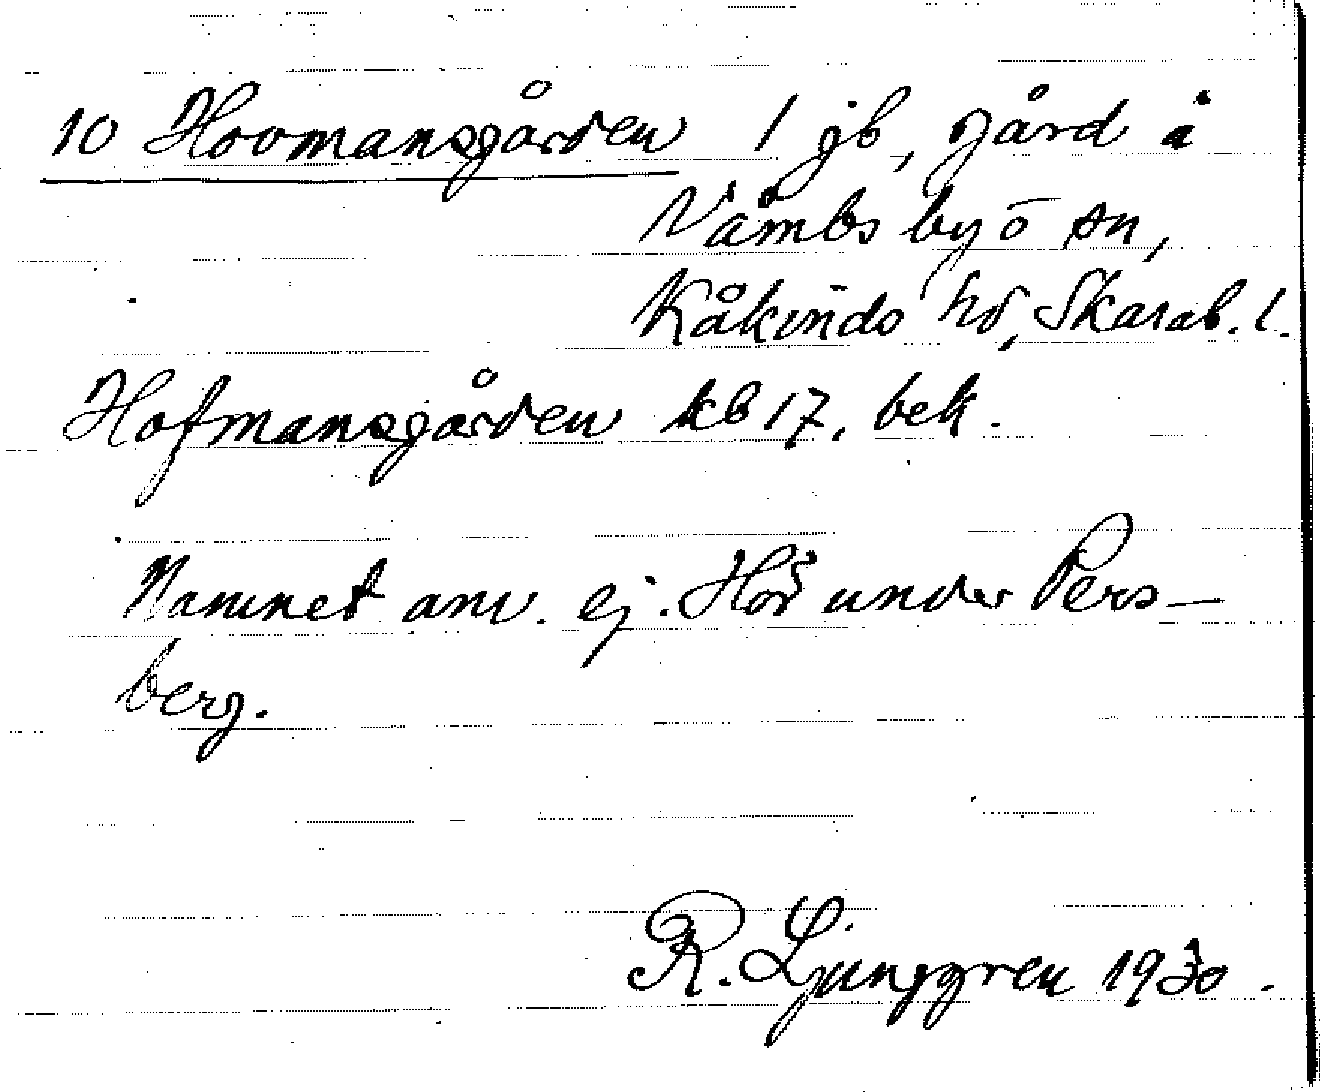 10 Hovmansgården 1 jb, gård i
Våmbs by o sn,
Kåkinds hd, Skarab. l.
Hofmansgården kb 17, bek.
Namnet anv. ej. Hör under Pers-
berg.
R. Ljunggren 1930.